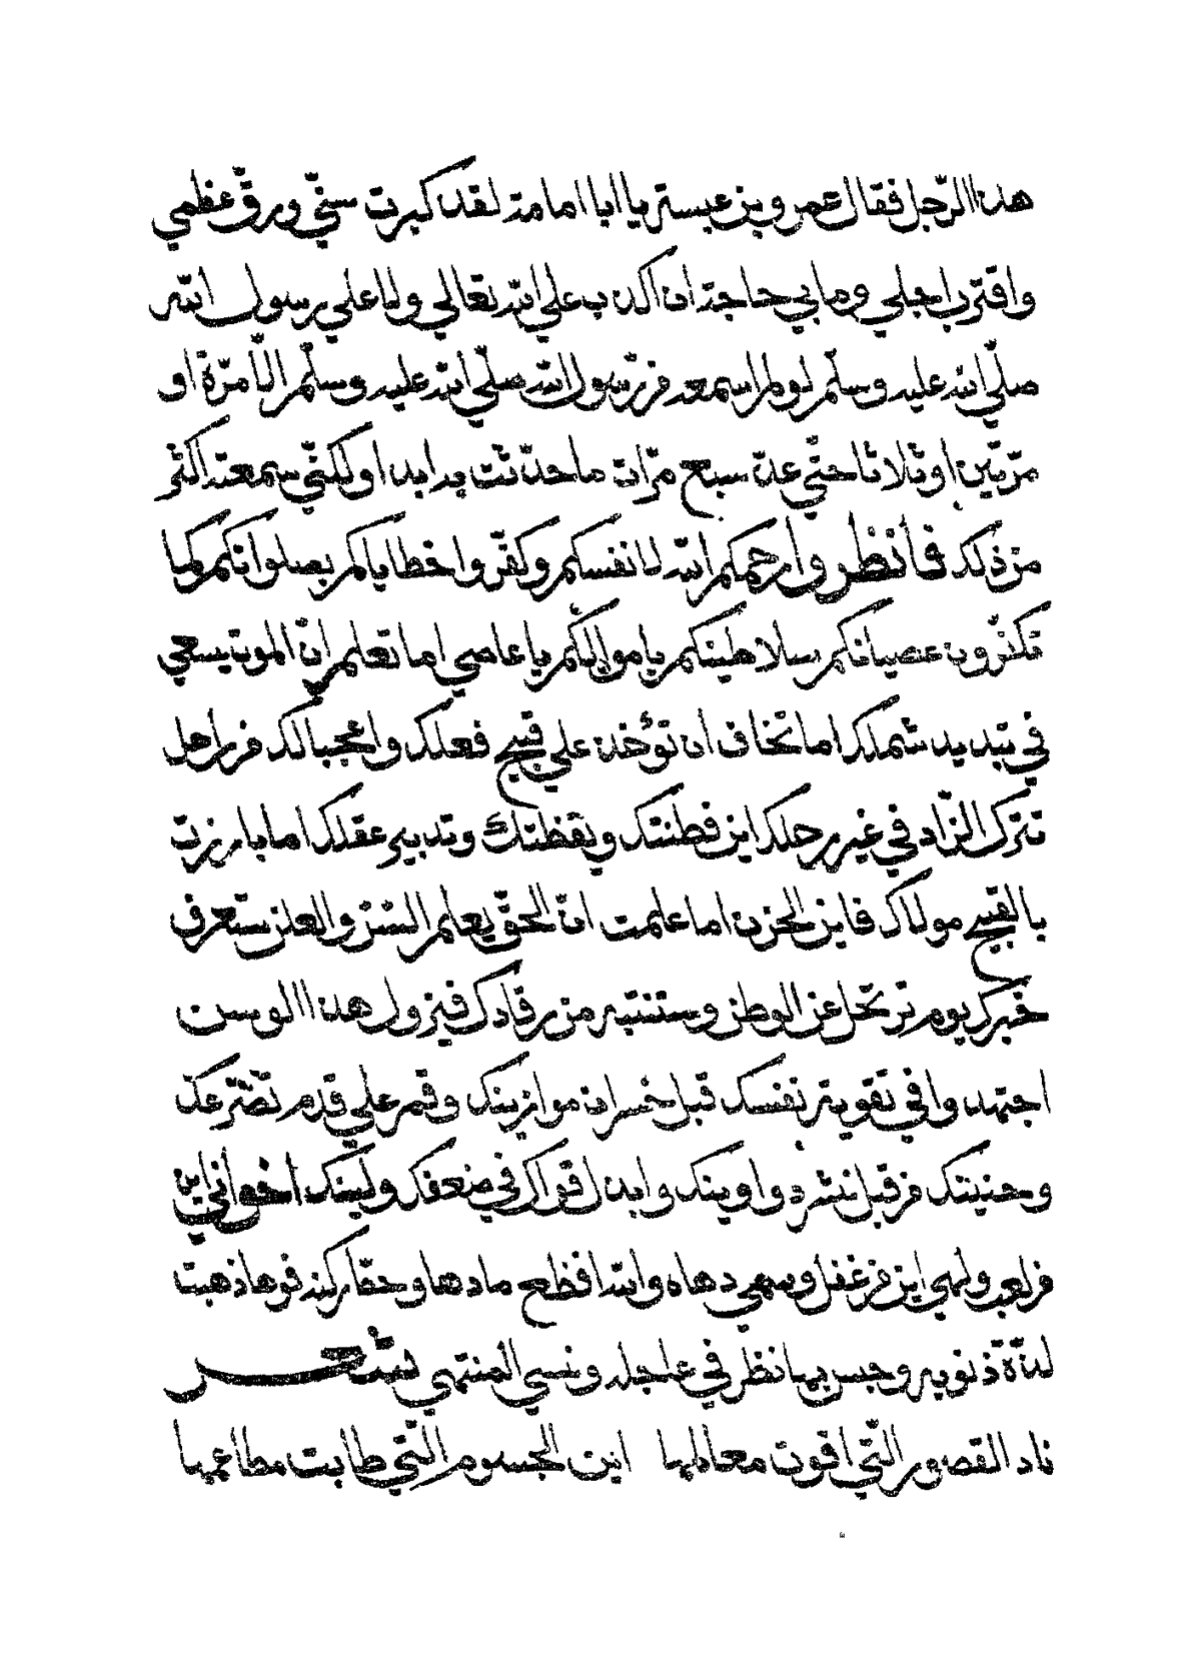 هذا الرّجل فقال عمرو بن عبسة يا ابا امامة لقد كبرت سنّي ورقّ عظمي
واقترب اجلي وما بي حاجة ان اكذب على الله تعالي ولا علي رسول الله
صلّي الله عليه وسلّم لو لم اسمعه من رسول الله صلّي الله عليه وسلّم الّا مرّة او
مرّتين او ثلاثا حتّي عدّ سبع مرّات ما حدّثت به ابدا ولكنّي سمعته اكثر
من ذلك فانظروا رحمكم الله لانفسكم وكفّروا خطاياكم بصلواتكم وكما
تكفّرون عصيانكم سلاطينكم يا مواليكم يا عاصي اما تعلم انّ الموت يسعي
في تبديد شملك اما تخاف ان تؤخذ علي قبيح فعلك واعجبا لك من راحل
تترك الزّاد في غير رحلك اين فطنتك ويقظتك وتدبير عقلك اما بارزت
بالقبيح مولاك فاين الحزن اما علمت انّ الحقّ يعلم السّرّ والعلن ستعرف
خبرك يوم ترتحل عن الوطن وستنتبه من رقادك فيزول هذا الوسن
اجتهدوا في تقوية نفسك قبل خسران موازينك وقم علي قدم تضرّعك
وحنينك من قبل نشر دواوينك وابذل قواك في ضعفك ولينك اخواني اين
من لعب ولهي اين من غفل وسهي دهاه والله افظع ما دها وحطّ ركنه فوها ذهبت
لذّة ذنوبه وحبس بها نظر في عاجله ونسي المنتهي شعر
ناد القصور الّتي اقوت معالمها اين الجسوم الّتي طابت مطاعمها